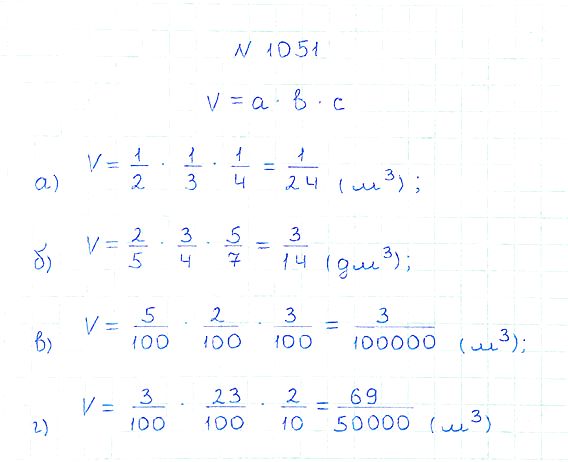 N 1051
V = a · в · с
а) V = 1/2 · 1/3 · 1/4 = 1/24 (м³);
б) V = 2/5 · 3/4 · 5/7 = 3/14 (дм³);
в) V = 5/100 · 2/100 · 3/100 = 3/100000 (м³);
г) V = 3/100 · 23/100 · 2/10 = 69/50000 (м³)